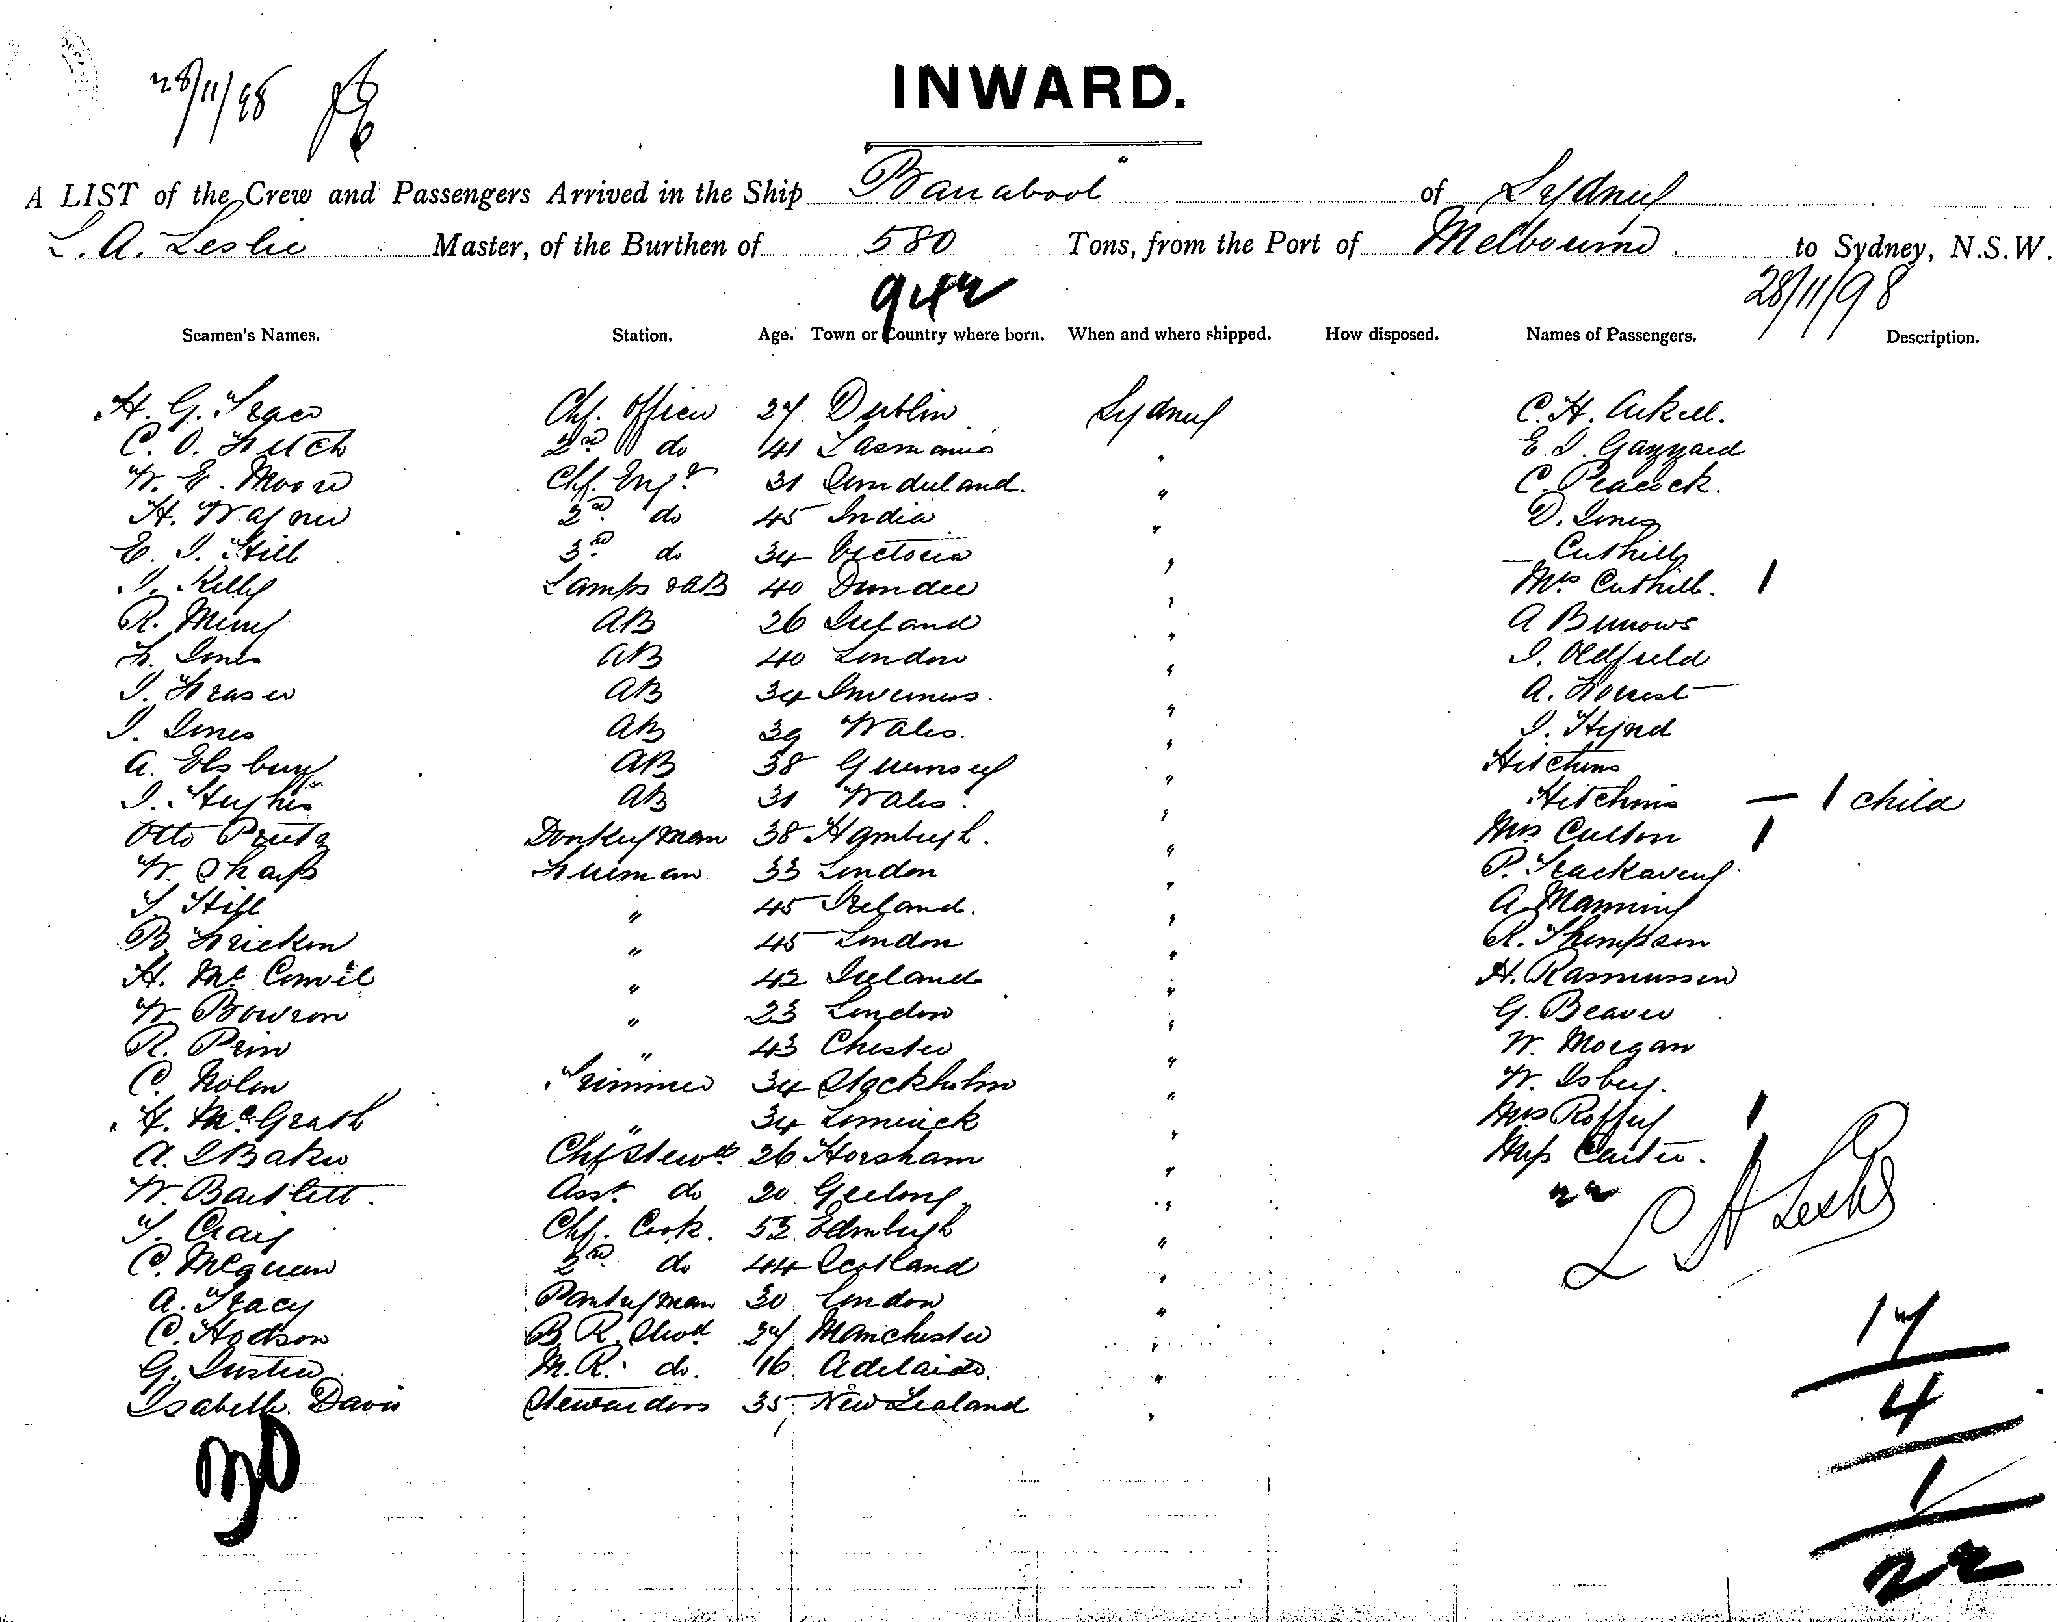 28/11/98
INWARD.
A LIST of the Crew and Passengers Arrived in the Ship Barrabool of Sydney
L. A. Leslie Master, of the Burthen of 580 Tons, from the Port of Melbourne to Sydney, N.S.W.
942 28/11/98
Seamen's Names. Station. Age. Town or Country where born. When and where shipped. How disposed. Names of Passengers. Description.
H. G. Chf. Officer 27 Dublin Sydney C. H.
C. O. 2nd do 41 Tasmania " E. J. Gazzard
W. E. Moore Chf. Engr 31 " C. Peacock.
H. 2nd do 45 India " D. Jones
E. J. Hill 3rd do 34 Victoria " — Cuthill
J. Kelly Lamps & AB 40 Dundee " Mrs Cuthill. 1
R. AB 26 Ireland " A Burrows
F. Jones AB 40 London " J. Oldfield
J. Fraser AB 34 Inverness. " A. Forrest
J. Jones AB 39 Wales. " J. Hynd
A. Elsbury AB 38 Guernsey " Hitchins
J. Hughes AB 31 Wales. " Hitchins — 1 child
Otto Donkeyman 38 Hamburgh. " Mrs 1
W. Sharp Fireman 33 London " P.
T. Hill " 45 Ireland. " A. Manning
B. " 45 London " R. Thompson
H. Mc " 42 Ireland " H. Rasmussen
W. Bowron " 23 London " G. Beaver
R. " 43 Chester " W. Morgan
C. Nolin Trimmer 34 Stockholm " W.
H. McGrath " 34 Limerick " Mrs Roffey 1
A. J Baker Chf Stewd 26 Horsham " Miss Carter. 1
W. Bartlett. Asst. do 20 Geelong " 22
T. Craig Chf. Cook. 53 Edinburgh " L A Leslie
C. McQueen 2nd do 44 Scotland "
A. Tracy Pantryman 30 London " 17
C. Hodson B. R. Stwd 27 Manchester "
G. M.R. do. 16 Adelaide. " 4
Isabella Davis Stewardess 35 New Zealand "
30 1
22